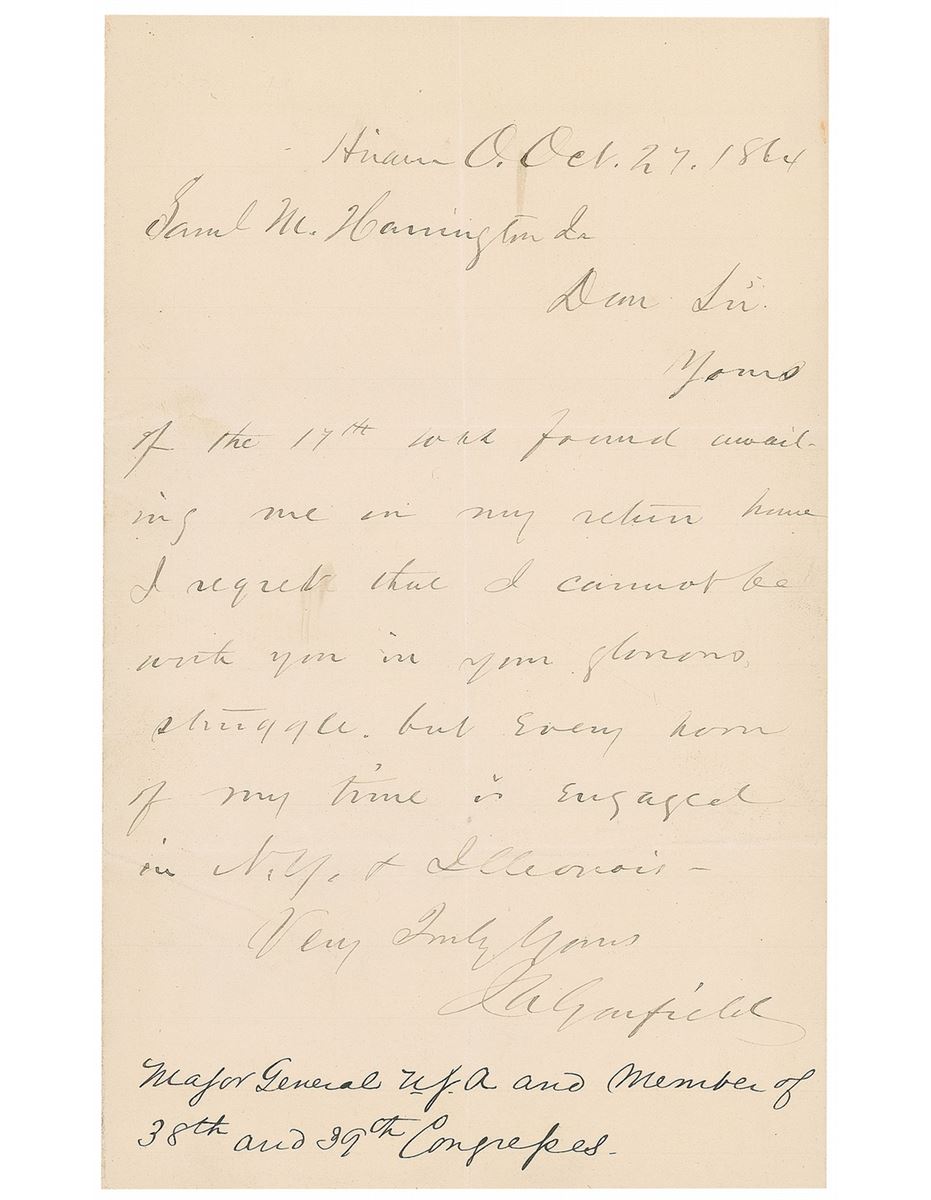 Hiram O. Oct. 27. 1864
Saml M. Harrington Jr
Dear Sir.
Yours
of the 17th was found await-
ing me on my return home
I regret that I cannot be
with you in your glorious
struggle. but every hour
of my time is engaged
in N.Y. & Illionois -
Very Truly Yours
J A Garfield
Major General U.S.A and Member of
38th and 39th Congresses.